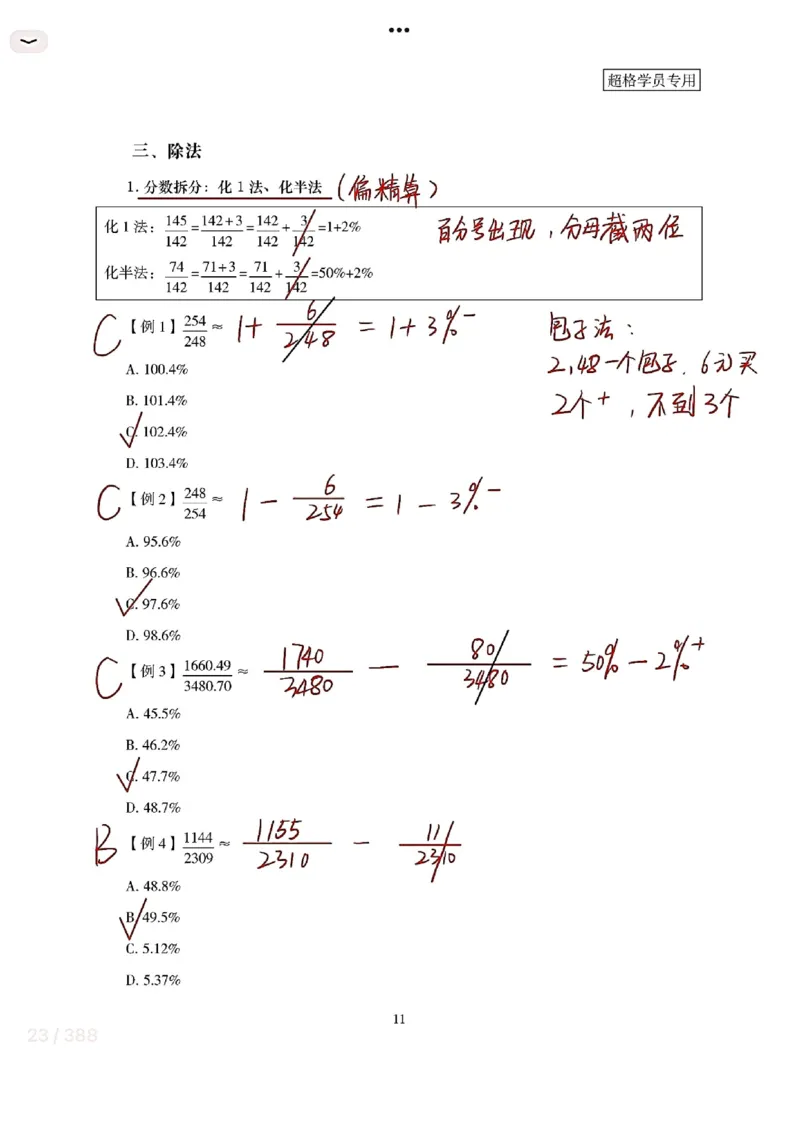 超格学员专用
三、除法
1. 分数拆分：化 1 法、化半法 (偏精算)
化 1 法：145/142=142+3/142=142/142+3/142=1+2%
百分号出现，分母截两位
化半法：74/142=71+3/142=71/142+3/142=50%+2%
C 【例 1】254/248≈ 1+ 6/248 = 1+3%-
包子法：
2.48一个包子．6元买
2个+，不到3个
A. 100.4%
B. 101.4%
C. 102.4%
D. 103.4%
C 【例 2】248/254≈ 1 - 6/254 = 1 - 3%-
A. 95.6%
B. 96.6%
C. 97.6%
D. 98.6%
C 【例 3】1660.49/3480.70≈ 1740/3480 - 80/3480 = 50% - 2%+
A. 45.5%
B. 46.2%
C. 47.7%
D. 48.7%
B 【例 4】1144/2309≈ 1155/2310 - 11/2310
A. 48.8%
B. 49.5%
C. 5.12%
D. 5.37%
11
23 / 388